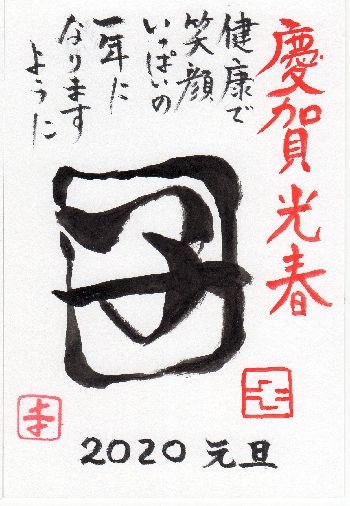 慶賀光春
健康で
笑顔
いっぱいの
一年に
なります
ように
子
2020 元旦